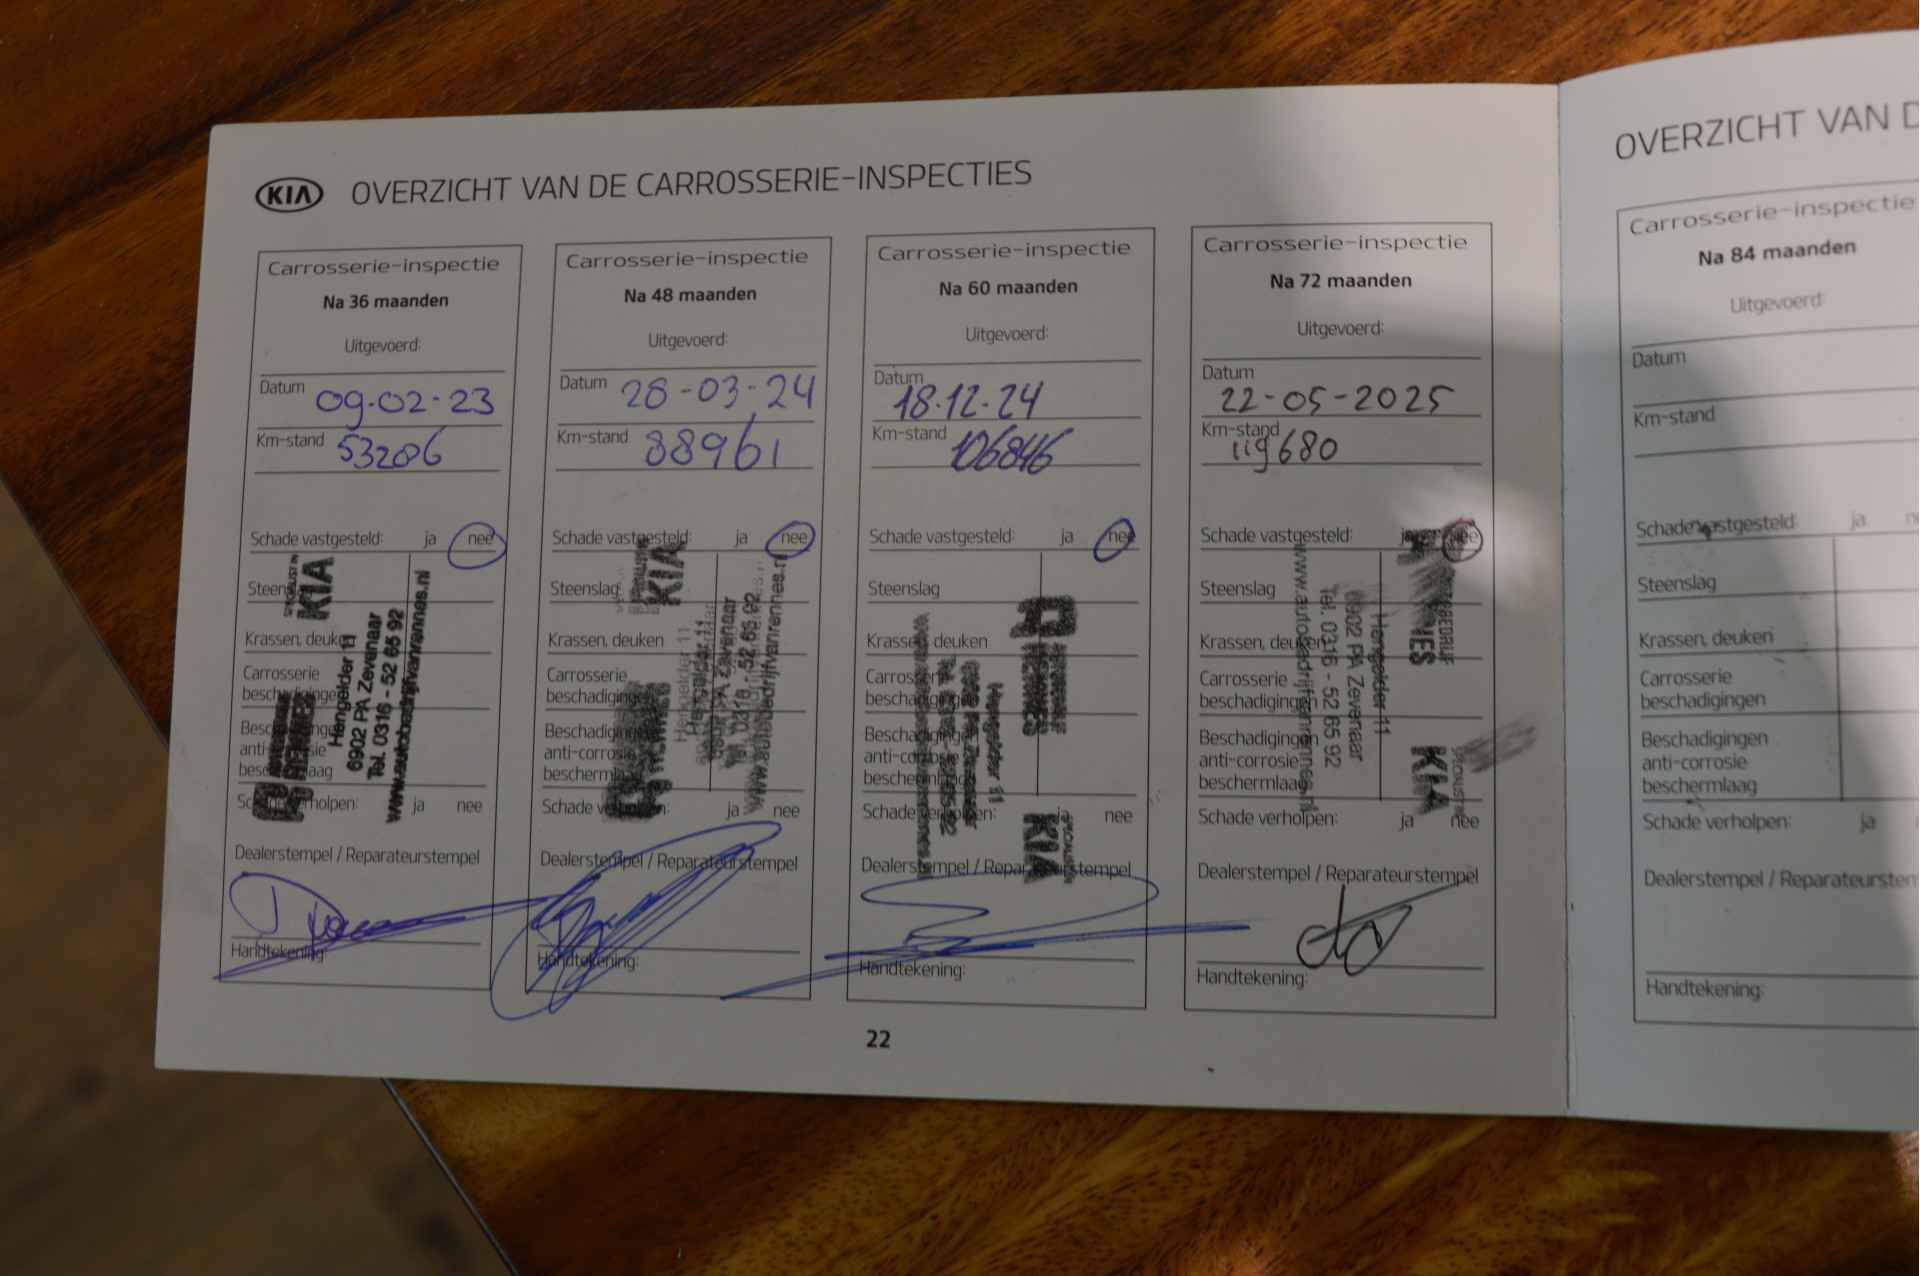 KIA OVERZICHT VAN DE CARROSSERIE-INSPECTIES
Carrosserie-inspectie
Na 36 maanden
Uitgevoerd:
Datum 09-02-23
Km-stand 53206
Schade vastgesteld: ja nee
Steenslag
Krassen, deuken
Carrosserie
beschadigingen
Beschadigingen
anti-corrosie
beschermlaag
Schade verholpen: ja nee
SPECIALIST IN
KIA
Hengelder 11
6902 PA Zevenaar
Tel. 0316 - 52 65 92
www.autobedrijfvanrennes.nl
Dealerstempel / Reparateurstempel
Handtekening:
Carrosserie-inspectie
Na 48 maanden
Uitgevoerd:
Datum 28-03-24
Km-stand 88961
Schade vastgesteld: ja nee
Steenslag
Krassen, deuken
Carrosserie
beschadigingen
Beschadigingen
anti-corrosie
beschermlaag
Schade verholpen: ja nee
KIA
Hengelder 11
6902 PA Zevenaar
Tel. 0316 - 52 65 92
www.autobedrijfvanrennes.nl
Dealerstempel / Reparateurstempel
Handtekening:
Carrosserie-inspectie
Na 60 maanden
Uitgevoerd:
Datum 18-12-24
Km-stand 106846
Schade vastgesteld: ja nee
Steenslag
Krassen, deuken
Carrosserie
beschadigingen
Beschadigingen
anti-corrosie
beschermlaag
Schade verholpen: nee
Hengelder 11
6902 PA Zevenaar
SPECIALIST IN
KIA
Dealerstempel / Reparateurstempel
Handtekening:
Carrosserie-inspectie
Na 72 maanden
Uitgevoerd:
Datum
22-05-2025
Km-stand
119680
Schade vastgesteld: ja nee
Steenslag
Krassen, deuken
Carrosserie
beschadigingen
Beschadigingen
anti-corrosie
beschermlaag
Schade verholpen: ja nee
Hengelder 11
6902 PA Zevenaar
Tel. 0316 - 52 65 92
www.autobedrijfvanrennes.nl
SPECIALIST IN
KIA
Dealerstempel / Reparateurstempel
Handtekening:
22
OVERZICHT VAN D
Carrosserie-inspectie
Na 84 maanden
Uitgevoerd:
Datum
Km-stand
Schade vastgesteld: ja
Steenslag
Krassen, deuken
Carrosserie
beschadigingen
Beschadigingen
anti-corrosie
beschermlaag
Schade verholpen: ja
Dealerstempel / Reparateursten
Handtekening: